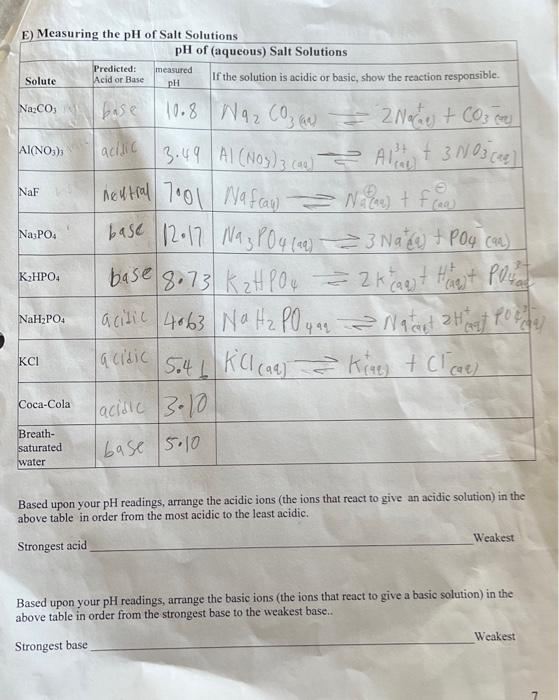 E) Measuring the pH of Salt Solutions
pH of (aqueous) Salt Solutions
Solute
Predicted: Acid or Base
measured pH
If the solution is acidic or basic, show the reaction responsible.
Na₂CO₃ base 10.8 Na₂CO₃(aq) ⇌ 2Na⁺(aq) + CO₃⁻(aq)
Al(NO₃)₃ acidic 3.49 Al(NO₃)₃(aq) ⇌ Al³⁺(aq) + 3NO₃⁻(aq)
NaF neutral 7.01 Naf(aq) ⇌ Na⊕(aq) + f⊖(aq)
Na₃PO₄ base 12.17 Na₃PO₄(aq) ⇌ 3Na⁺(aq) + PO₄⁻(aq)
K₂HPO₄ base 8.73 K₂HPO₄ ⇌ 2K⁺(aq) + H⁺(aq) + PO₄
NaH₂PO₄ acidic 4.63 NaH₂PO₄aq ⇌ Na⁺(aq) + 2H⁺(aq) + PO₄
KCl acidic 5.4 KCl(aq) ⇌ K⁺(aq) + Cl⁻(aq)
Coca-Cola acidic 3.10
Breath-
saturated base 5.10
water
Based upon your pH readings, arrange the acidic ions (the ions that react to give an acidic solution) in the
above table in order from the most acidic to the least acidic.
Strongest acid Weakest
Based upon your pH readings, arrange the basic ions (the ions that react to give a basic solution) in the
above table in order from the strongest base to the weakest base..
Strongest base Weakest
7